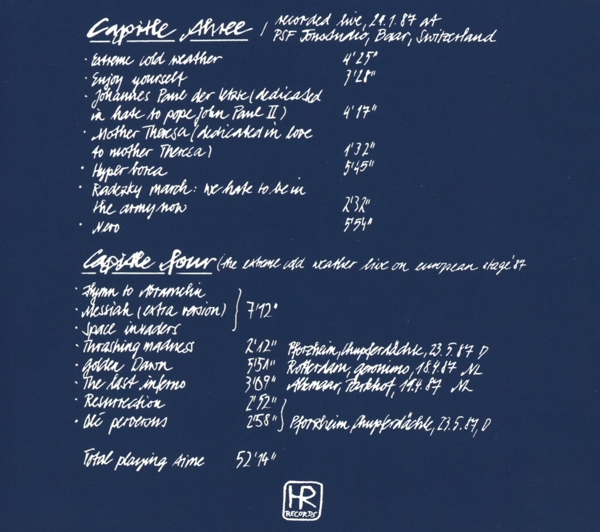 Capitle three / recorded live, 29.1.87 at
PSF Tonstudio, Baar, Switzerland
· Extreme cold weather 4'25"
· Enjoy yourself 3'28"
· Johannes Paul der letzte (dedicated
in hate to pope John Paul II) 4'17"
· Mother Theresa (dedicated in love
to mother Theresa) 1'32"
· Hyperborea 5'45"
· Radezky march: we hate to be in
the army now 2'32"
· Nero 5'54"
Capitle four (the extreme cold weather live on european stage '87
· Hymn to Abramelin
· Messiah (extra version) 7'12"
· Space invaders
· Thrashing madness 2'12" Pforzheim, Schlupferdächle, 23.5.87 D
· Golden Dawn 5'51" Rotterdam, geronimo, 18.4.87 NL
· The last inferno 3'09" Alkmaar, Parkhof, 19.4.87 NL
· Resurrection 2'52"
· Olé perversus 2'58" Pforzheim, Schlupferdächle, 23.5.87, D
Total playing time 52'14"
HR
RECORDS